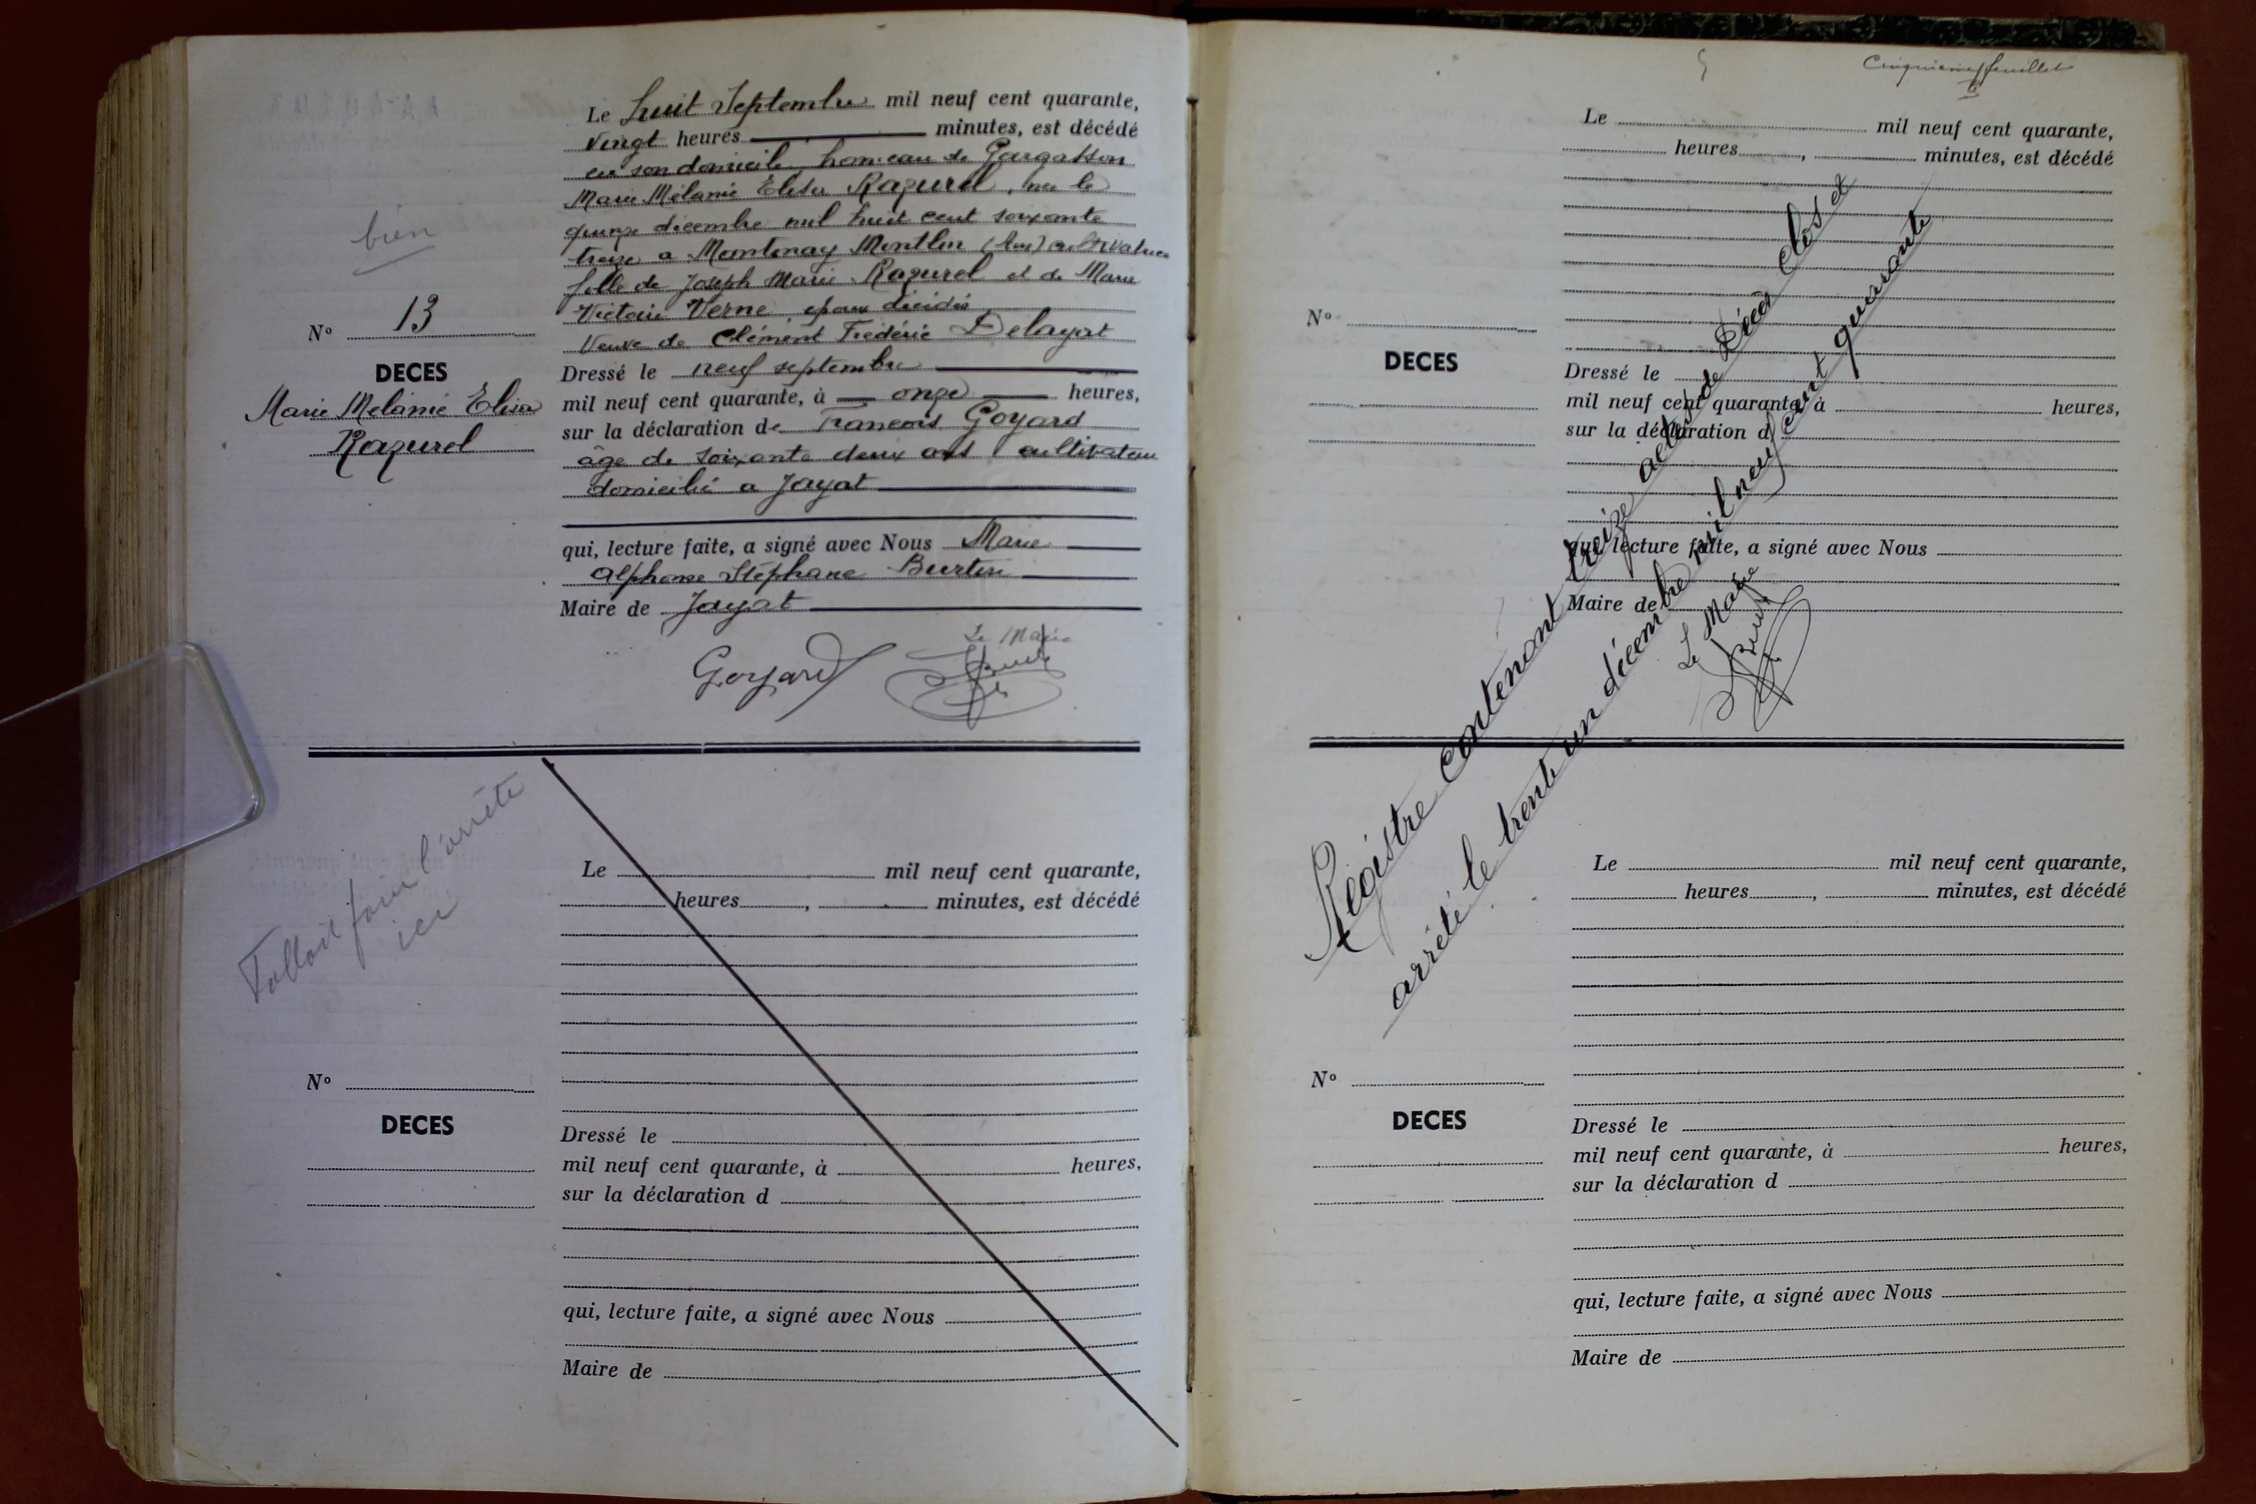 Le huit Septembre mil neuf cent quarante,
vingt heures minutes, est décédé
en son domicile, hameau de
Marie Mélanie Elisa Razurel, née le
quinze décembre mil huit cent soixante
treize a Mantenay Montlin (Ain) cultivatrice
fille de Joseph Marie Razurel et de Marie
Victoire Verne, époux décédés
Veuve de Clément Frédéric Delayat
Dressé le neuf septembre
mil neuf cent quarante, à onze heures,
sur la déclaration de Francois Goyard
âge de soixante deux ans cultivateur
domicilié a Jayat
qui, lecture faite, a signé avec Nous Marie
Alphonse Stéphane Burtin
Maire de Jayat
Goyard
Le Maire
bien
No 13
DECES
Marie Melanie Elisa
Razurel
Falloit faire l'arrête
ici
Le mil neuf cent quarante,
heures , minutes, est décédé
No
DECES
Dressé le
mil neuf cent quarante, à heures,
sur la déclaration d
qui, lecture faite, a signé avec Nous
Maire de
5
Cinquième feuillet
Le mil neuf cent quarante,
heures , minutes, est décédé
No
DECES
Dressé le
mil neuf cent quarante, à heures,
sur la déclaration d
qui, lecture faite, a signé avec Nous
Maire de
Registre contenant treize actes de Décès clos et
arrêté le trente un décembre mil neuf cent quarante
Le Maire
Le mil neuf cent quarante,
heures , minutes, est décédé
No
DECES
Dressé le
mil neuf cent quarante, à heures,
sur la déclaration d
qui, lecture faite, a signé avec Nous
Maire de